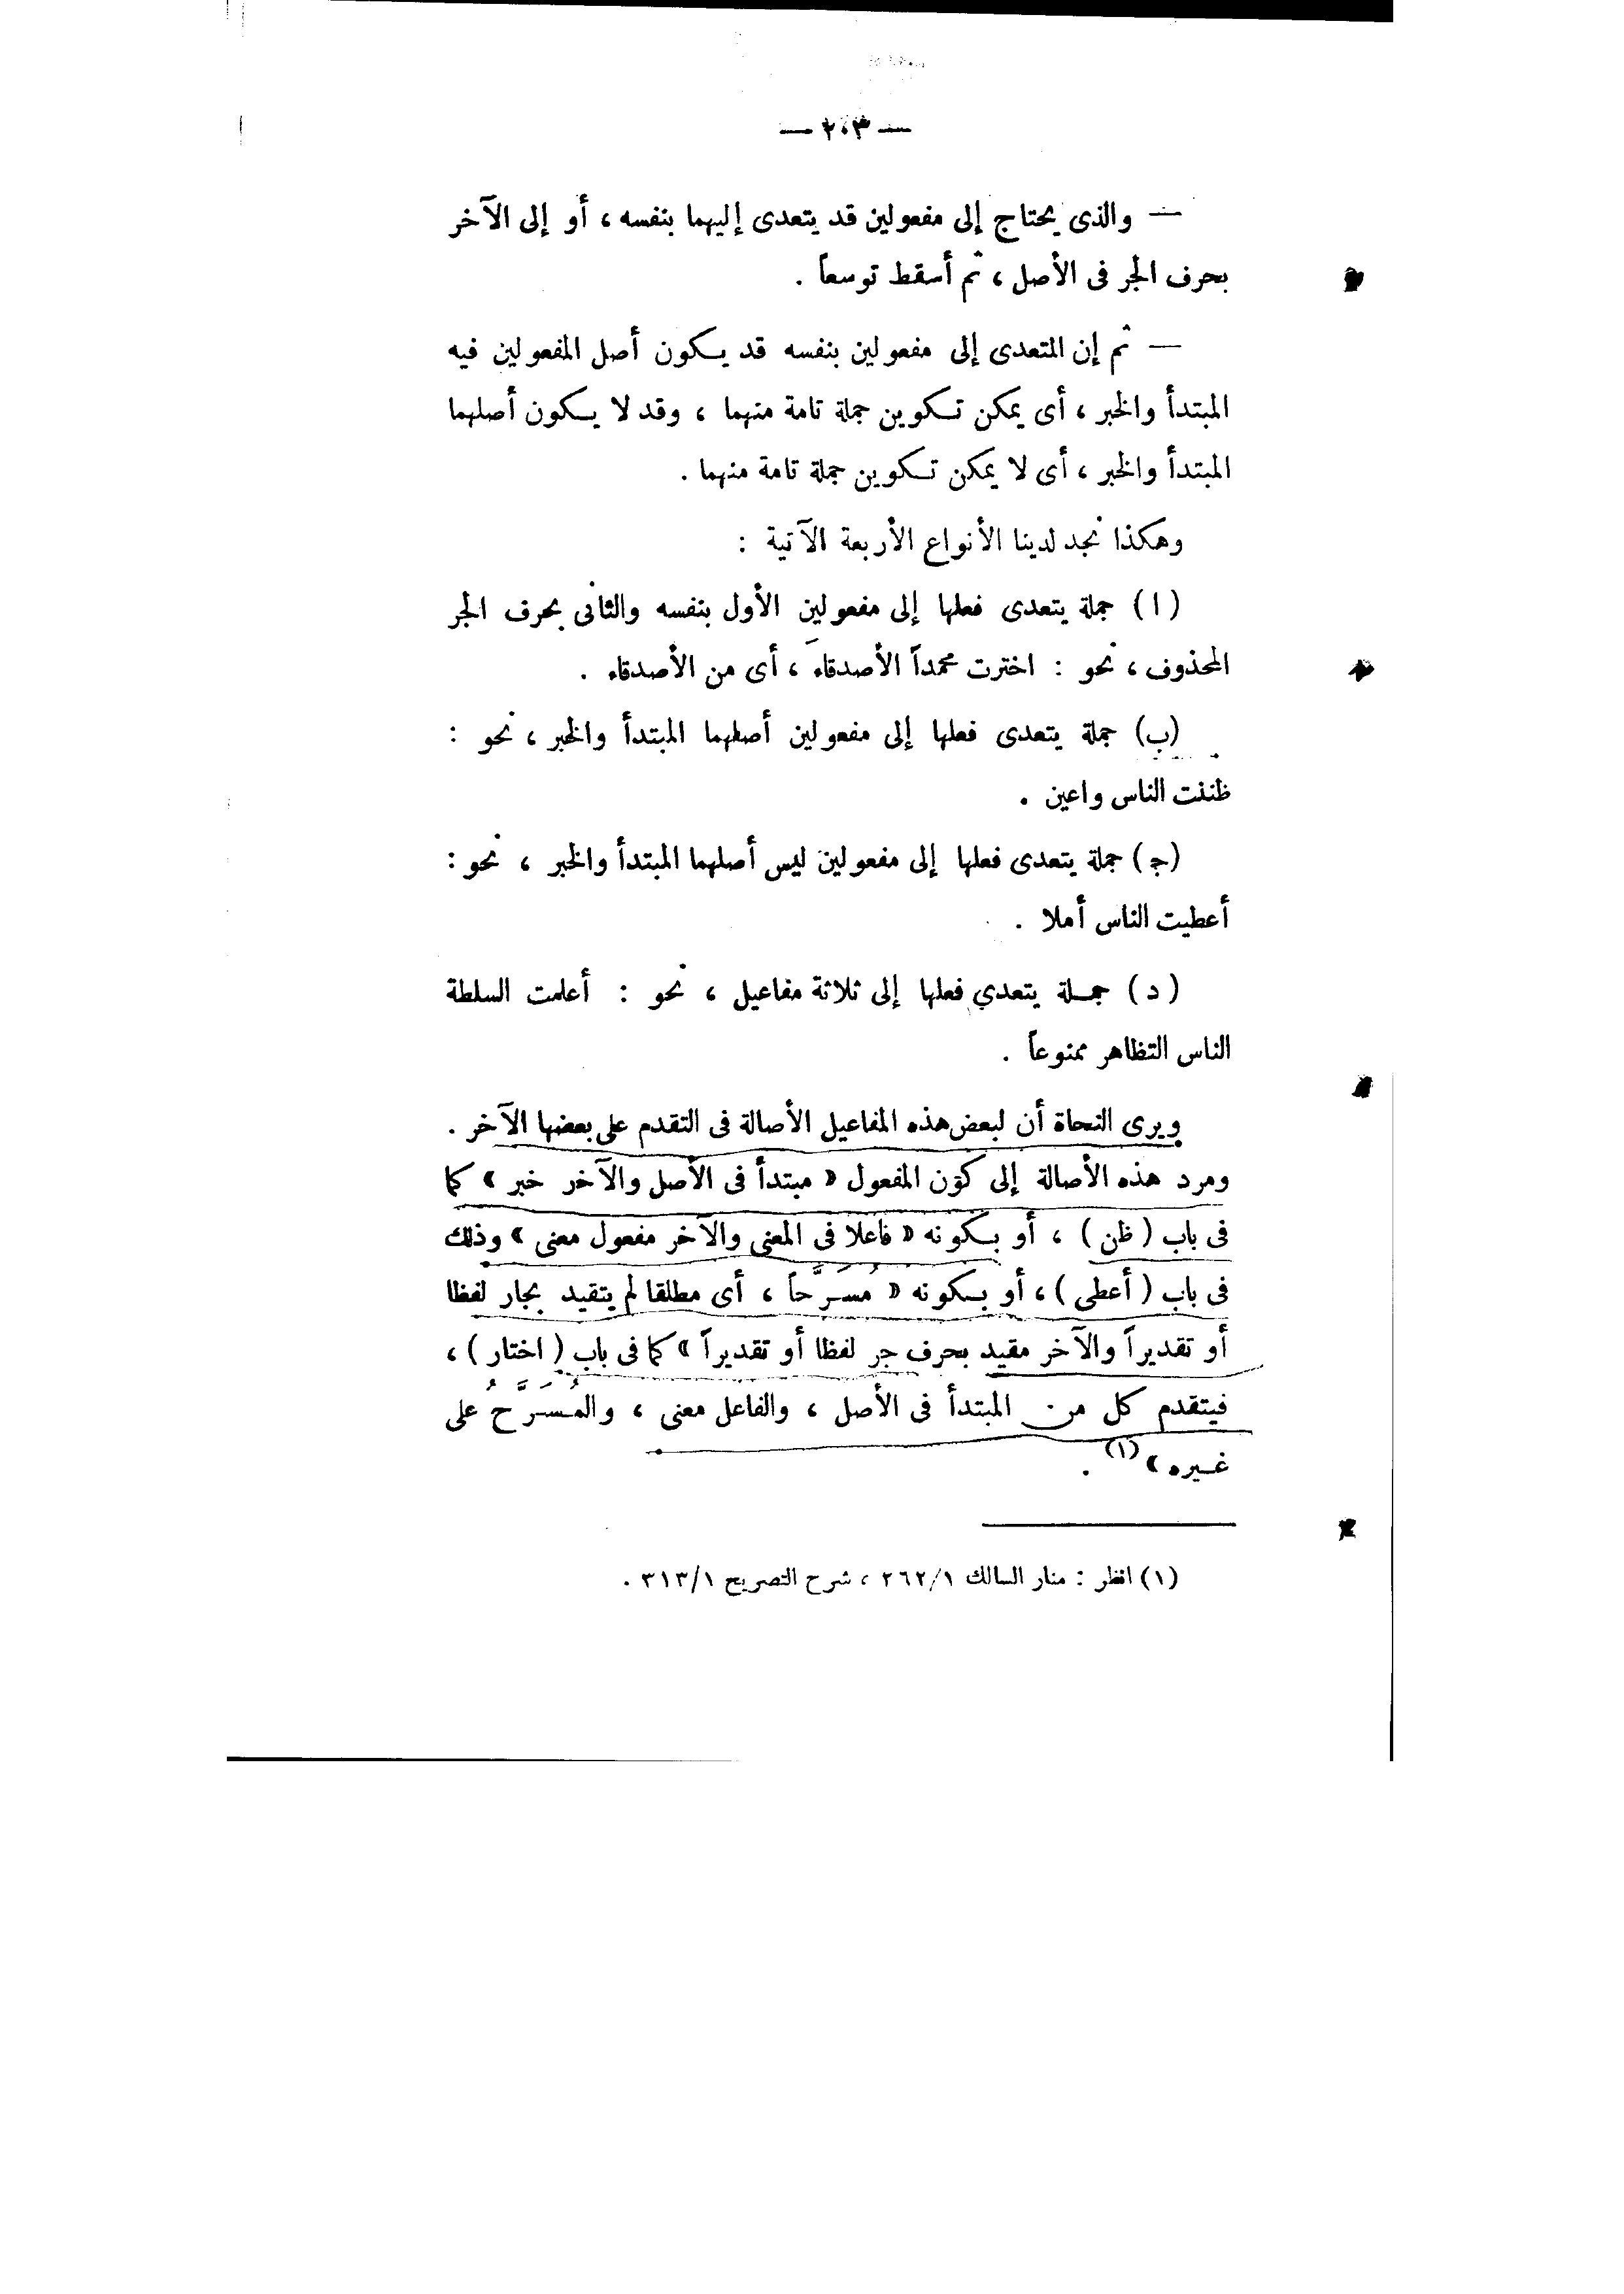 — ٢٠٣ —
— والذى يحتاج إلى مفعولين قد يتعدى إليهما بنفسه ، أو إلى الآخر
بحرف الجر فى الأصل ، ثم أسقط توسعاً .
— ثم إن المتعدى إلى مفعولين بنفسه قد يكون أصل المفعولين فيه
المبتدأ والخبر ، أى يمكن تكوين جملة تامة منهما ، وقد لا يكون أصلهما
المبتدأ والخبر ، أى لا يمكن تكوين جملة تامة منهما .
وهكذا نجد لدينا الأنواع الأربعة الآتية :
( ا ) جملة يتعدى فعلها إلى مفعولين الأول بنفسه والثانى بحرف الجر
المحذوف ، نحو : اخترت محمداً الأصدقاءَ ، أى من الأصدقاء .
(ب) جملة يتعدى فعلها إلى مفعولين أصلهما المبتدأ والخبر ، نحو :
ظننت الناس واعين .
(ج) جملة يتعدى فعلها إلى مفعولين ليس أصلهما المبتدأ والخبر ، نحو :
أعطيت الناس أملا .
( د ) جملة يتعدي فعلها إلى ثلاثة مفاعيل ، نحو : أعلمت السلطة
الناس التظاهر ممنوعاً .
ويرى النحاة أن لبعض هذه المفاعيل الأصالة فى التقدم على بعضها الآخر .
ومرد هذه الأصالة إلى كون المفعول « مبتدأ فى الأصل والآخر خبر » كما
فى باب ( ظن ) ، أو بكونه « فاعلا فى المعنى والآخر مفعول معنى » وذلك
فى باب ( أعطى ) ، أو بكونه « مُسَرَّحاً ، أى مطلقا لم يتقيد بجار لفظا
أو تقديراً والآخر مقيد بحرف جر لفظا أو تقديراً » كما فى باب ( اختار ) ،
فيتقدم كل من المبتدأ فى الأصل ، والفاعل معنى ، والمُسَرَّحُ على
غيره » (١) .
(١) انظر : منار السالك ٢٦٢/١ ، شرح التصريح ٣١٣/١ .